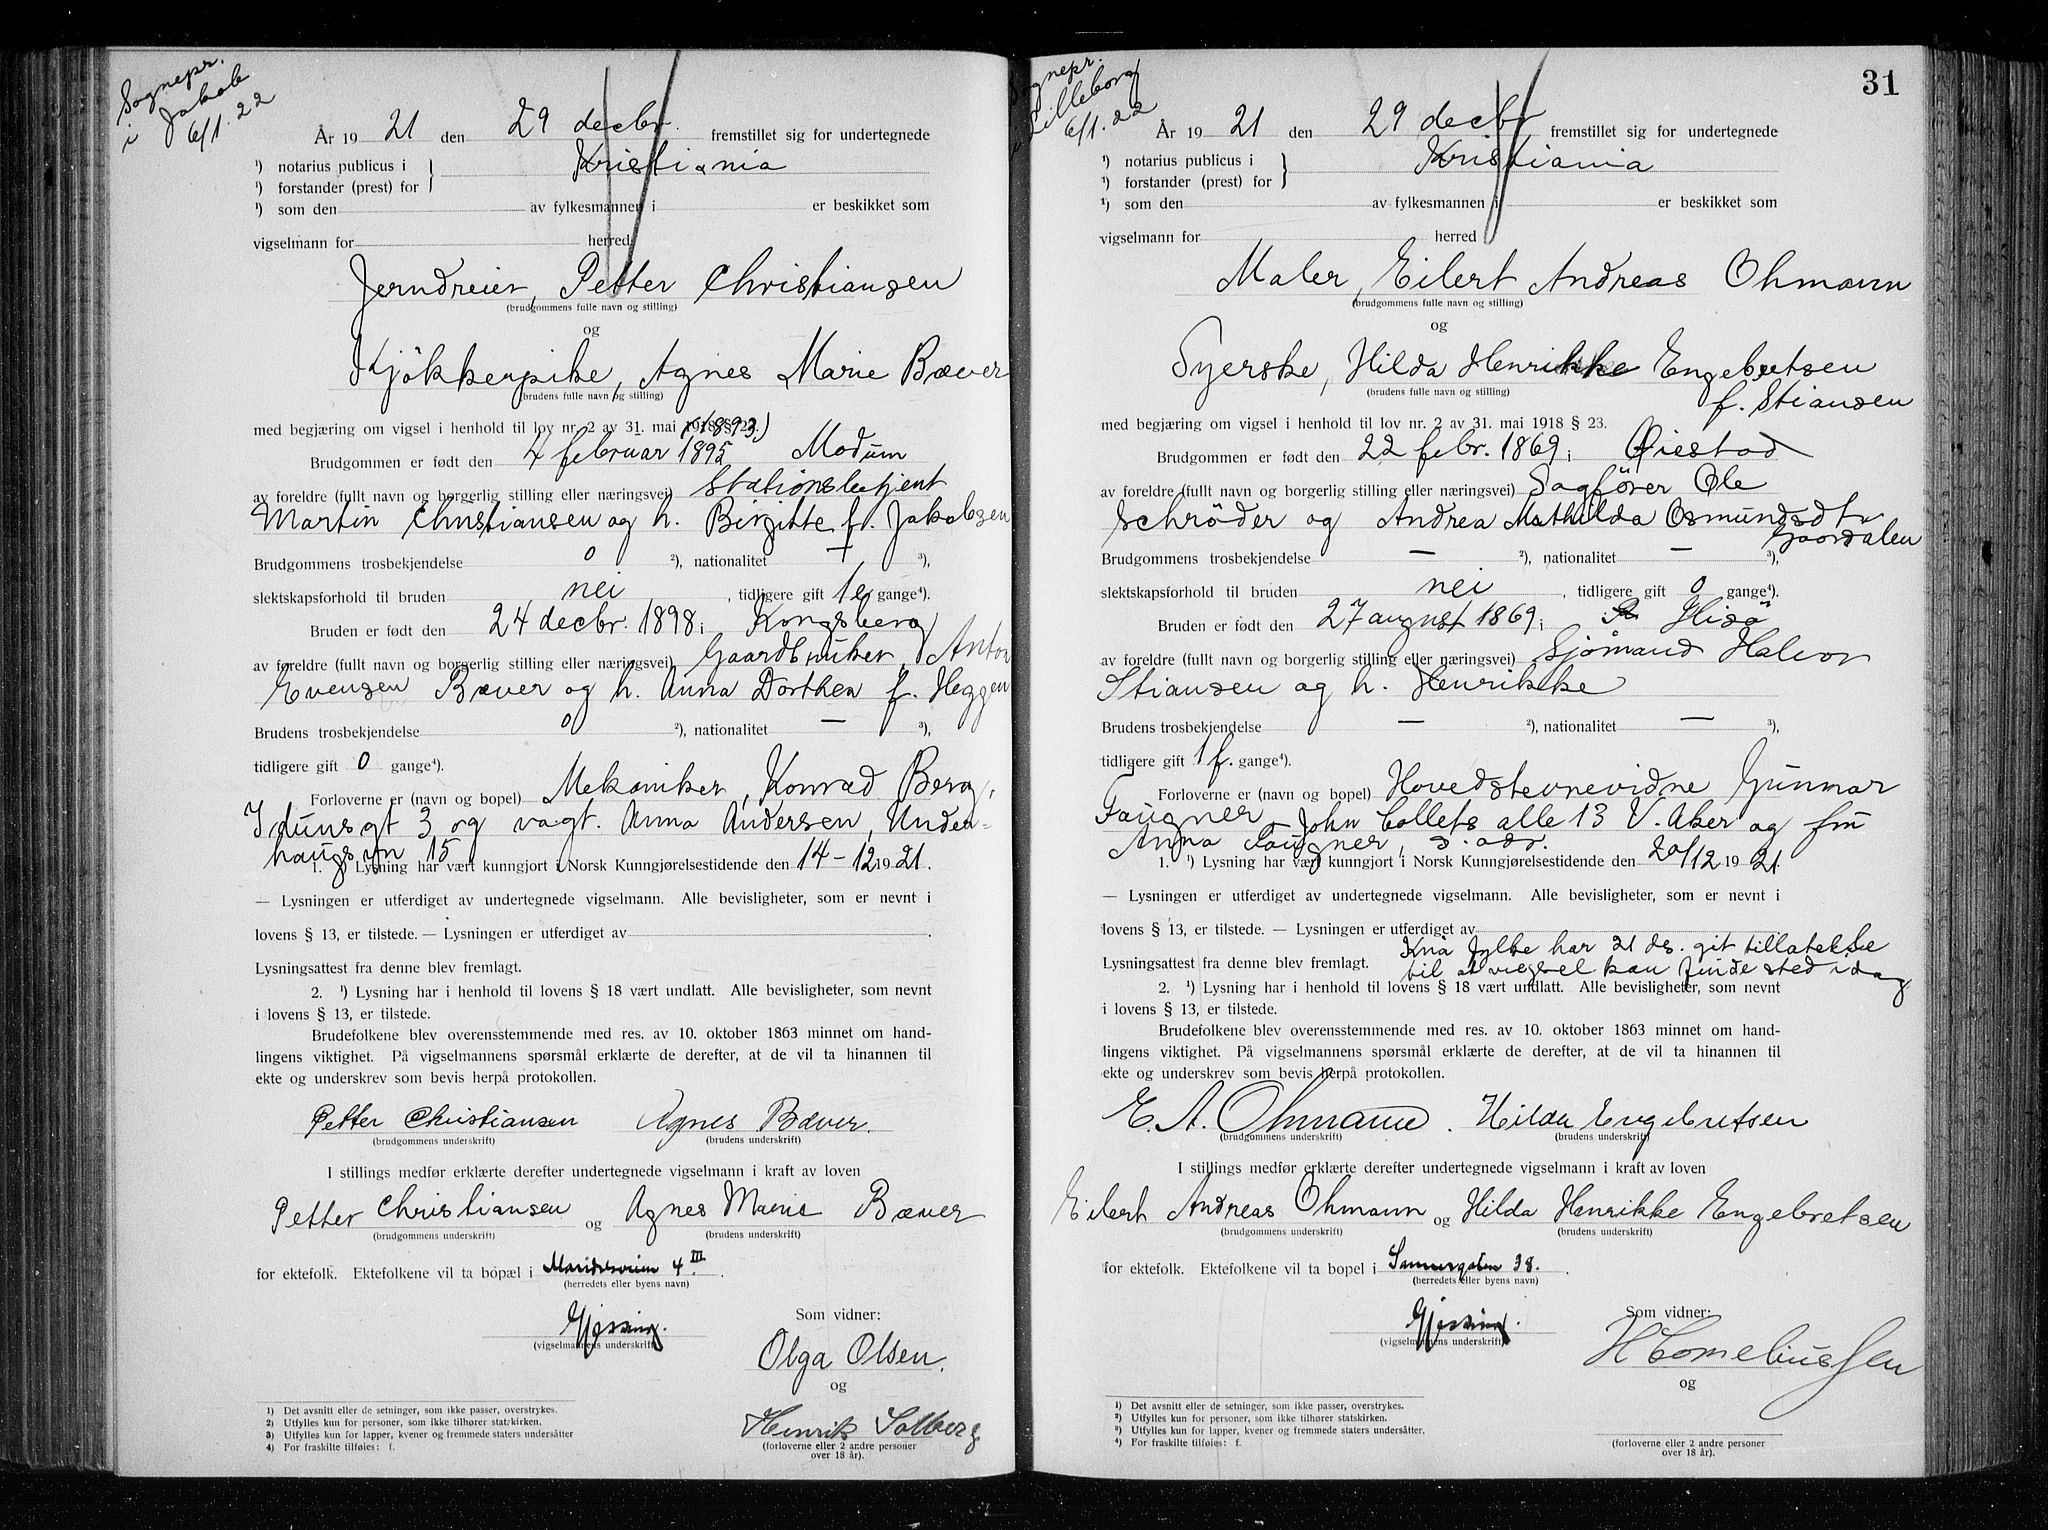 Sognepr.
i Jakob
6/1. 22
År 19 21 den 29 decbr. fremstillet sig for undertegnede
¹) notarius publicus i } Kristiania
¹) forstander (prest) for
¹) som den av fylkesmannen i er beskikket som
vigselmann for herred
Jerndreier, Petter Christiansen
(brudgommens fulle navn og stilling)
og
Kjøkkenpike, Agnes Marie Bæver
(brudens fulle navn og stilling)
med begjæring om vigsel i henhold til lov nr. 2 av 31. mai 1918 § 23.
(1893)
Brudgommen er født den 4 februar 1895 Modum
av foreldre (fullt navn og borgerlig stilling eller næringsvei) Stationsbetjent
Martin Christiansen og h. Birgitte f. Jakobsen
Brudgommens trosbekjendelse 0 ²), nationalitet + ³),
slektskapsforhold til bruden nei , tidligere gift 1e gange⁴).
Bruden er født den 24 decbr. 1898 i Kongsberg
av foreldre (fullt navn og borgerlig stilling eller næringsvei) Gaardbruker Anton
Evensen Bæver og h. Anna Dorthea f. Heggen
Brudens trosbekjendelse 0 ²), nationalitet — ³),
tidligere gift 0 gange⁴).
Forloverne er (navn og bopel) Mekaniker, Konrad Berg,
Idunsgt 3 og vagt. Anna Andersen, Underhaugsvn 15
1. ¹) Lysning har vært kunngjort i Norsk Kunngjørelsestidende den 14-12 1921.
— Lysningen er utferdiget av undertegnede vigselmann. Alle bevisligheter, som er nevnt i
lovens § 13, er tilstede. — Lysningen er utferdiget av .
Lysningsattest fra denne blev fremlagt.
2. ¹) Lysning har i henhold til lovens § 18 vært undlatt. Alle bevisligheter, som nevnt
i lovens § 13, er tilstede.
Brudefolkene blev overensstemmende med res. av 10. oktober 1863 minnet om hand-
lingens viktighet. På vigselmannens spørsmål erklærte de derefter, at de vil ta hinannen til
ekte og underskrev som bevis herpå protokollen.
Petter Christiansen Agnes Bæver.
(brudgommens underskrift) (brudens underskrift)
I stillings medfør erklærte derefter undertegnede vigselmann i kraft av loven
Petter Christiansen og Agnes Marie Bæver
(brudgommens underskrift) (brudens underskrift)
for ektefolk. Ektefolkene vil ta bopæl i Maridalsveien 4 III.
(herredets eller byens navn)
Gjessing. Som vidner:
(vigselmannens underskrift)
Olga Olsen.
og
Henrik Solberg
(forloverne eller 2 andre personer
over 18 år).
1) Det avsnitt eller de setninger, som ikke passer, overstrykes.
2) Utfylles kun for personer, som ikke tilhører statskirken.
3) Utfylles kun for lapper, kvener og fremmede staters undersåtter
4) For fraskilte tilføies: f.
31
Sognepr.
i Lilleborg
6/1. 22
År 19 21 den 29 decbr fremstillet sig for undertegnede
¹) notarius publicus i } Kristiania
¹) forstander (prest) for
¹) som den av fylkesmannen i er beskikket som
vigselmann for herred
Maler, Eilert Andreas Ohmann
(brudgommens fulle navn og stilling)
og
Syerske, Hilda Henrikke Engebretsen
(brudens fulle navn og stilling) f. Stiansen
med begjæring om vigsel i henhold til lov nr. 2 av 31. mai 1918 § 23.
Brudgommen er født den 22 febr. 1869 i Øiestad
av foreldre (fullt navn og borgerlig stilling eller næringsvei) Sagfører Ole
Schrøder og Andrea Mathilda Osmundsdt
Gaosdalen
Brudgommens trosbekjendelse — ²), nationalitet — ³),
slektskapsforhold til bruden nei , tidligere gift 0 gange⁴).
Bruden er født den 27 august 1869 i Hisø
av foreldre (fullt navn og borgerlig stilling eller næringsvei) Sjømand Halvor
Stiansen og h. Henrikke
Brudens trosbekjendelse — ²), nationalitet — ³),
tidligere gift 1 f. gange⁴).
Forloverne er (navn og bopel) Hovedstevnevidne Gunnar
Faugner, John Collets alle 13 V. Aker og fru
Anna Faugner, s. adr.
1. ¹) Lysning har vært kunngjort i Norsk Kunngjørelsestidende den 20/12 1921.
— Lysningen er utferdiget av undertegnede vigselmann. Alle bevisligheter, som er nevnt i
lovens § 13, er tilstede. — Lysningen er utferdiget av
Kria fylke har 21 ds. git tillatelse
Lysningsattest fra denne blev fremlagt. til at vigsel kan finde sted idag
2. ¹) Lysning har i henhold til lovens § 18 vært undlatt. Alle bevisligheter, som nevnt
i lovens § 13, er tilstede.
Brudefolkene blev overensstemmende med res. av 10. oktober 1863 minnet om hand-
lingens viktighet. På vigselmannens spørsmål erklærte de derefter, at de vil ta hinannen til
ekte og underskrev som bevis herpå protokollen.
E. A. Ohmann. Hilda Engebretsen
(brudgommens underskrift) (brudens underskrift)
I stillings medfør erklærte derefter undertegnede vigselmann i kraft av loven
Eilert Andreas Ohmann og Hilda Henrikke Engebretsen
(brudgommens underskrift) (brudens underskrift)
for ektefolk. Ektefolkene vil ta bopel i Sannergaten 38.
(herredets eller byens navn)
Gjessing. Som vidner:
(vigselmannens underskrift)
H Corneliussen
og
(forloverne eller 2 andre personer
over 18 år).
¹) Det avsnitt eller de setninger, som ikke passer, overstrykes.
²) Utfylles kun for personer, som ikke tilhører statskirken.
³) Utfylles kun for lapper, kvener og fremmede staters undersåtter.
⁴) For fraskilte tilføies: f.